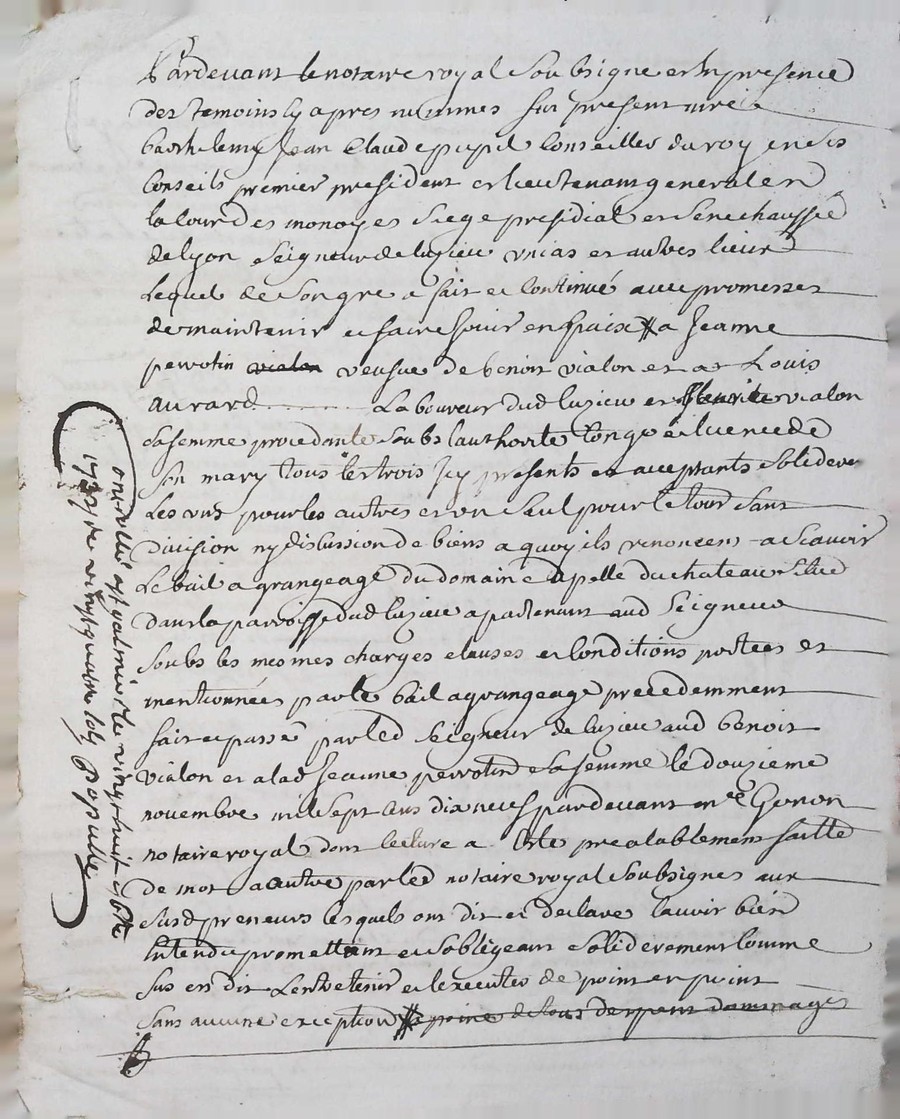 Pardevant le notaire royal soubsigne et en presence
des temoins cy apres nommes fut present mre
barthelemy Jean Claude pupil Conseiller du roy en ses
Conseils premier president et lieutenant general en
la Cour des monoyes siege presidial et senechaussée
de lyon seigneur de luzieu unias et autres lieux
lequel de son gre a fait et continué avec promesses
de maintenir et faire jouir en paix a Jeanne
perrotin vialon veufue de benoit vialon et a Louis
aurard Laboureur dud luzieu et fleurie vialon
sa femme procedante soubs lauthorite conge et licence de
son mary tous les trois Icy presents et acceptants solidere
les uns pour les autres et un seul pour le tout sans
Division ny discussion de biens a quoy ils renoncent a scavoir
Le bail a grangeage du domaine apelle du chateau situé
Dans la paroisse dud luzieu apartenant aud seigneur
soubs les mesmes charges clauses et Conditions portees et
mentionnées par le bail a grangeage precedemment
fait et passé par led seigneur de luzieu aud benoit
vialon et a lad Jeanne perrotin sa femme le douzieme
novembre mil sept cens dix neuf pardevant me Genon
notaire royal dont lecture a este prealablement faitte
de mot a autre par led notaire royal soubsignes aux
susd preneurs lesquels ont dit et declare lavoir bien
Entendu promettant et sobligeant soliderement Comme
sus en dit Lentretenir et lexecuter de point en point
sans aucune exception a peine de tous despens dommages
Controllé a st galmier le vingt huit
1725 de vingt quatre sols Populle